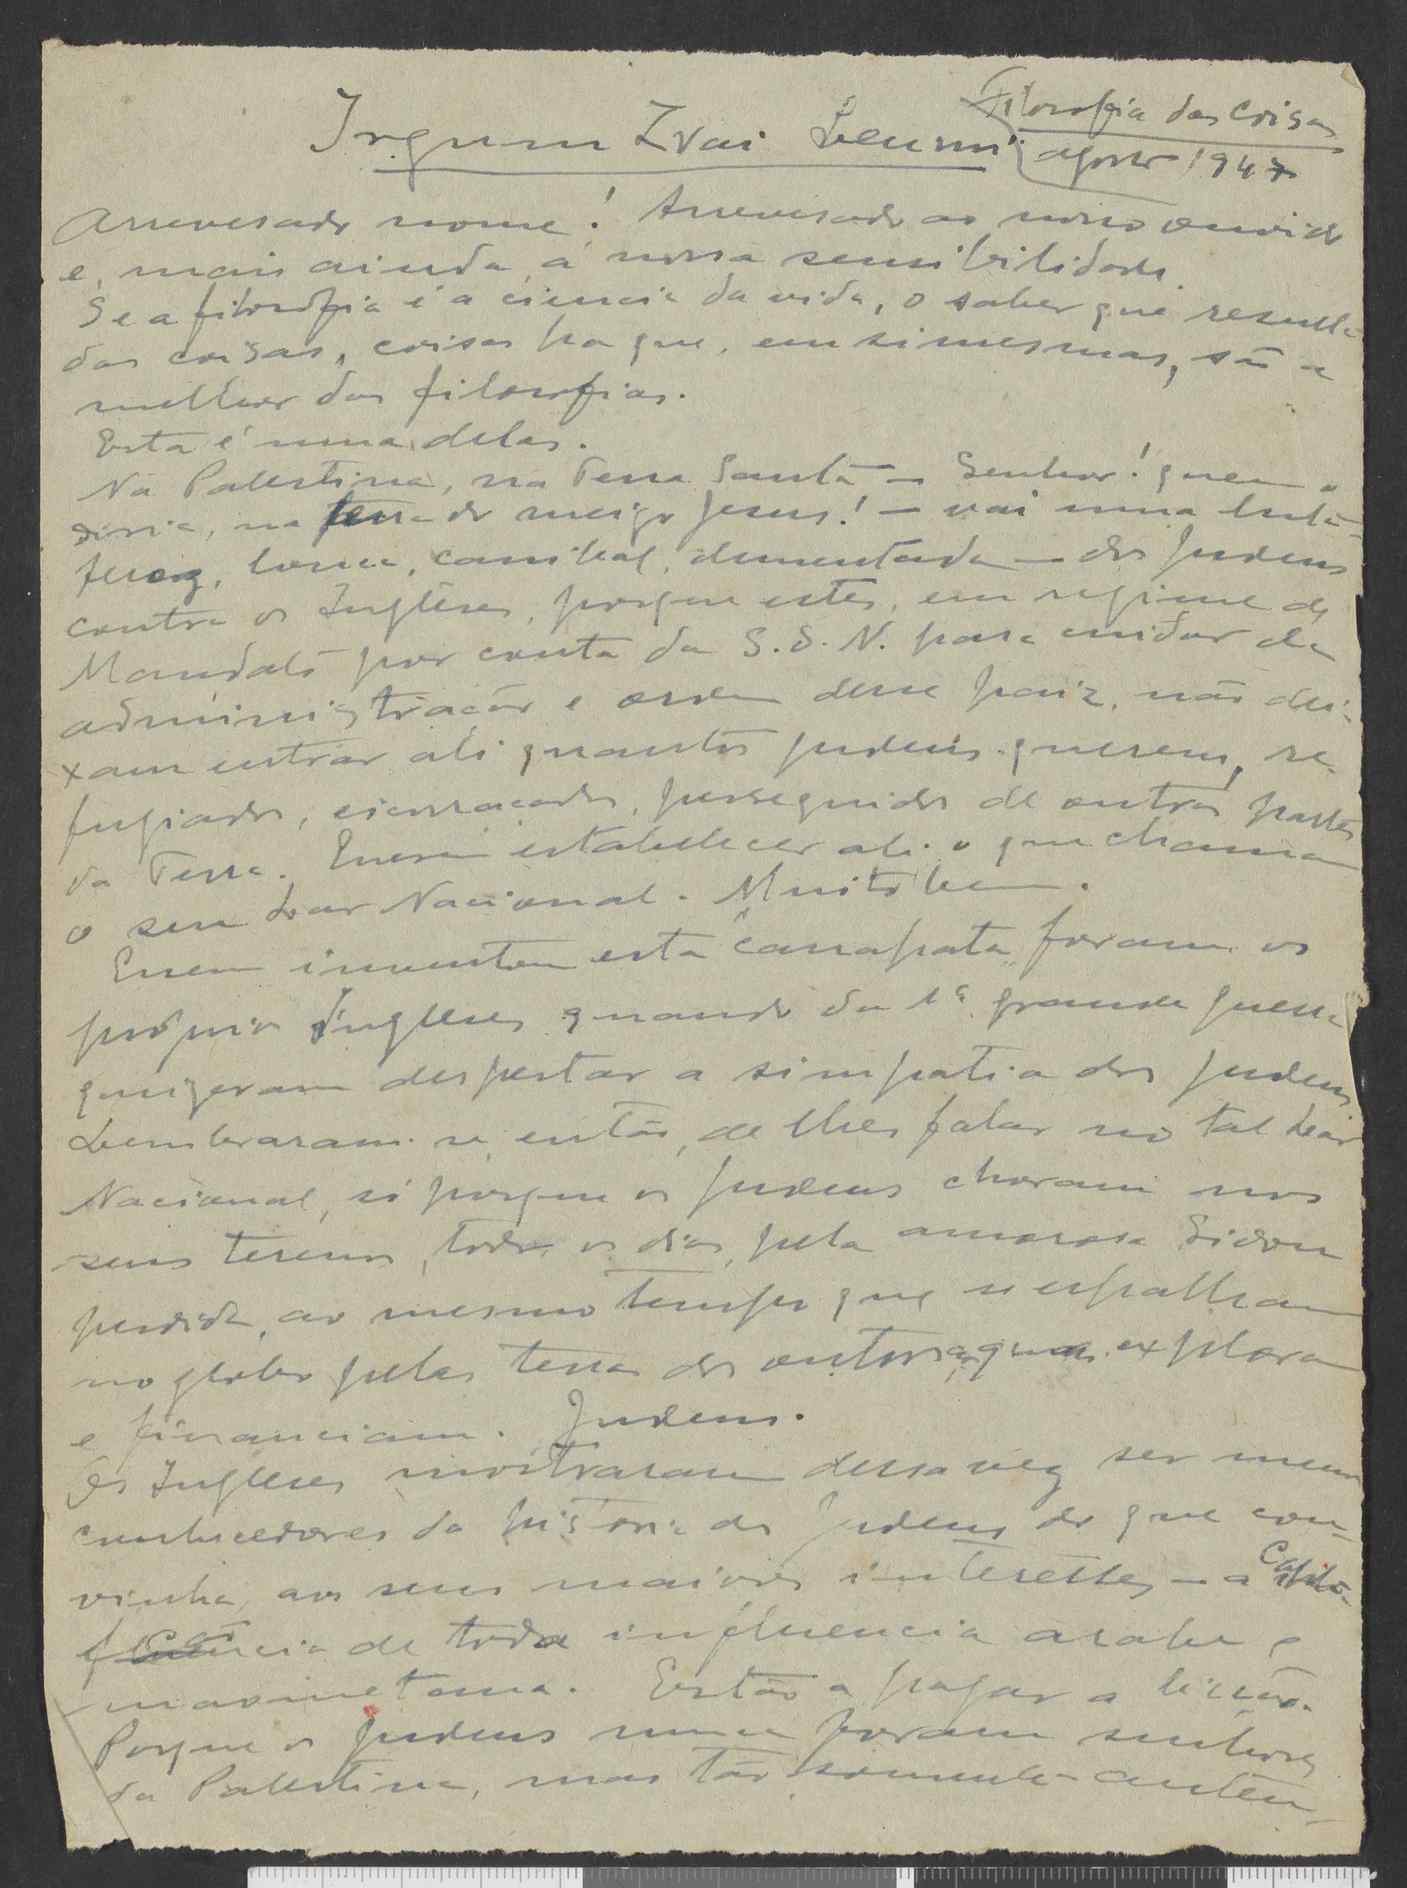 Irgum Zvai Leumi
Filosofia das Coisas
agosto 1947
Arrevesado nome! Arrevesado ao nosso ouvido
e, mais ainda, á nossa sensibilidade.
Se a filosofia é a ciencia da vida, o saber que resulta
das coisas, coisas ha que, em si mesmas, são a
melhor das filosofias.
Esta é uma delas.
Na Palestina, na Terra Santa — Senhor! quem o
diria, na terra do meigo Jesus! — vai uma luta
feroz, louca, canibal, dementada — dos Judeus
contra os Inglêses, porque estes, em regime de
Mandato por conta da S. d. N. para cuidar da
administração e ordem desse paiz, não dei-
xam entrar ali quantos judeus querem, re-
fugiados, escorraçados, perseguidos de outras partes
da Terra. Querem estabelecer ali o que chamam
o seu Lar Nacional. Muito bem.
Quem inventou esta "carrapata" foram os
próprios Ingleses quando da 1ª grande guerra
quizeram despertar a simpatia dos judeus
Lembraram-se, então, de lhes falar no tal Lar
Nacional, só porque os Judeus choram nos
seus , todos os dias, pela amorosa
perdida, ao mesmo tempo que se espalham
no globo pelas terras dos outros, que exploram
e financiam. Judeus.
Os Ingleses mostraram dessa vez ser menos
conhecedores da historia dos Judeus do que con-
vinha aos seus maiores interesses — a
de toda influencia arabe e
maometana. Estão a pagar a lição.
Porque os Judeus nunca foram senhores
da Palestina, mas tão somente